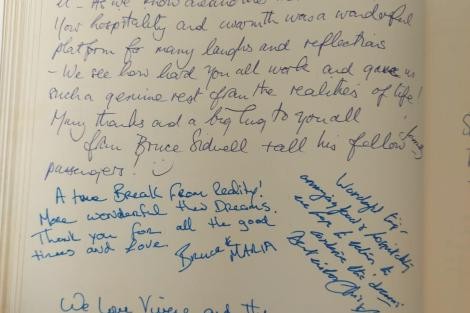 it - As we know
Your hospitality and warmth was a wonderful
platform for many laughs and reflections
- We see how hard you all work and gave us
such a genuine rest from the realities of life!
Many thanks and a big hug to you all
from Bruce Sidwell + all his fellow
passengers!
A true Break From Reality!
More wonderful than Dreams.
Thank you for all the good
times and love.
Bruce & MARIA
Wonderful trip -
amazing food & hospitality
we hope to return to
the
We Love Vivere and the